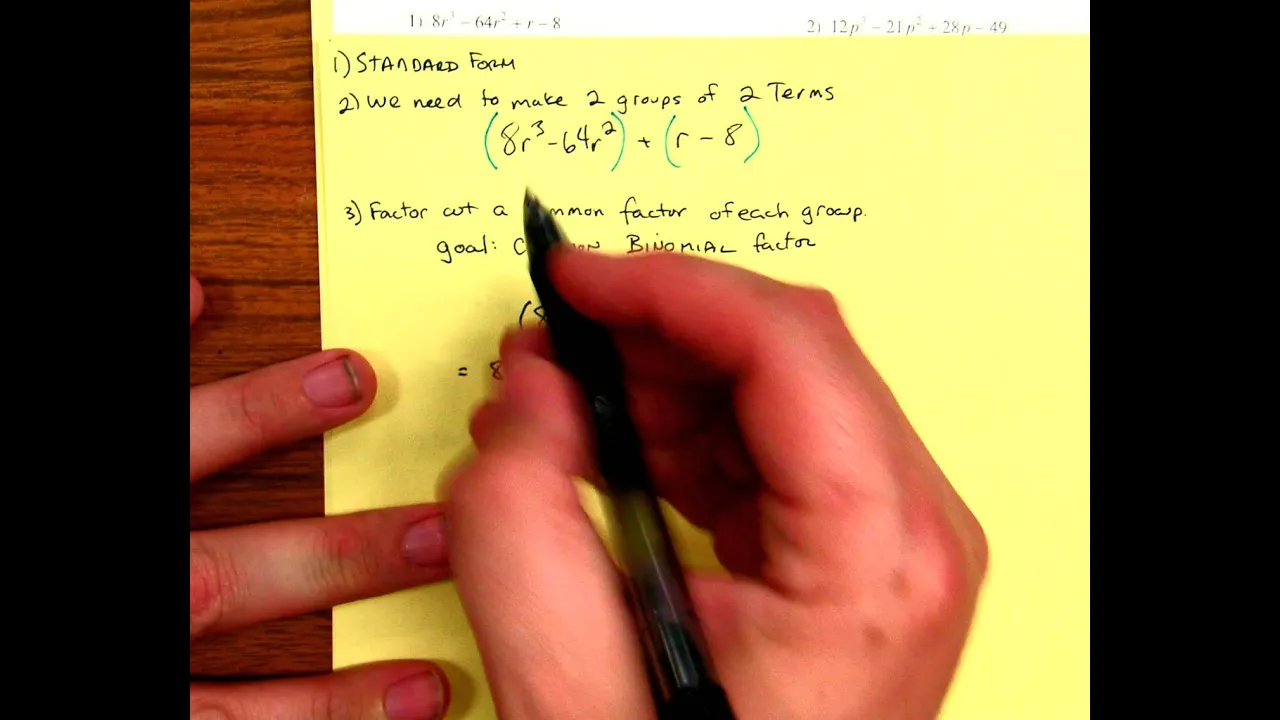 1) 8r³ − 64r² + r − 8
2) 12p³ − 21p² + 28p − 49
1) STANDARD FORM
2) We need to make 2 groups of 2 Terms
(8r³ - 64r²) + (r - 8)
3) Factor out a factor of each group.
goal: BINOMIAL factor
(8
= 8